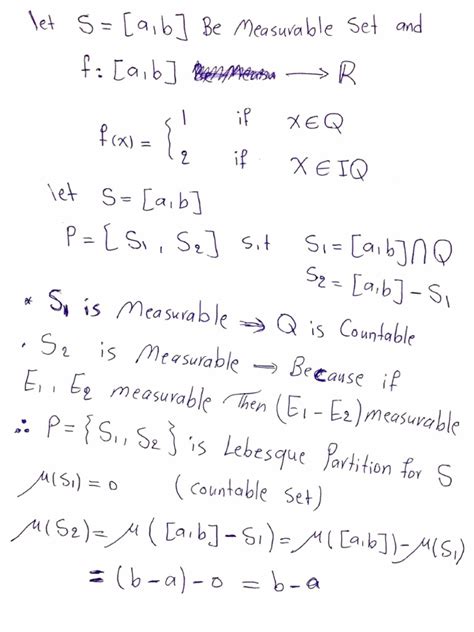 let S = [a,b] Be Measurable Set and
f: [a,b] ⟶ R
f(x) = { 1 if x ∈ Q
2 if x ∈ IQ
let S = [a,b]
P = [S₁, S₂] s,t S₁ = [a,b] ⋂ Q
S₂ = [a,b] - S₁
* S₁ is Measurable ⇒ Q is Countable
. S₂ is Measurable → Because if
E₁, E₂ measurable Then (E₁ - E₂) measurable
∴ P = {S₁, S₂} is Lebesque Partition for S
μ(S₁) = 0 (countable set)
μ(S₂) = μ([a,b] - S₁) = μ([a,b]) - μ(S₁)
= (b-a) - 0 = b-a